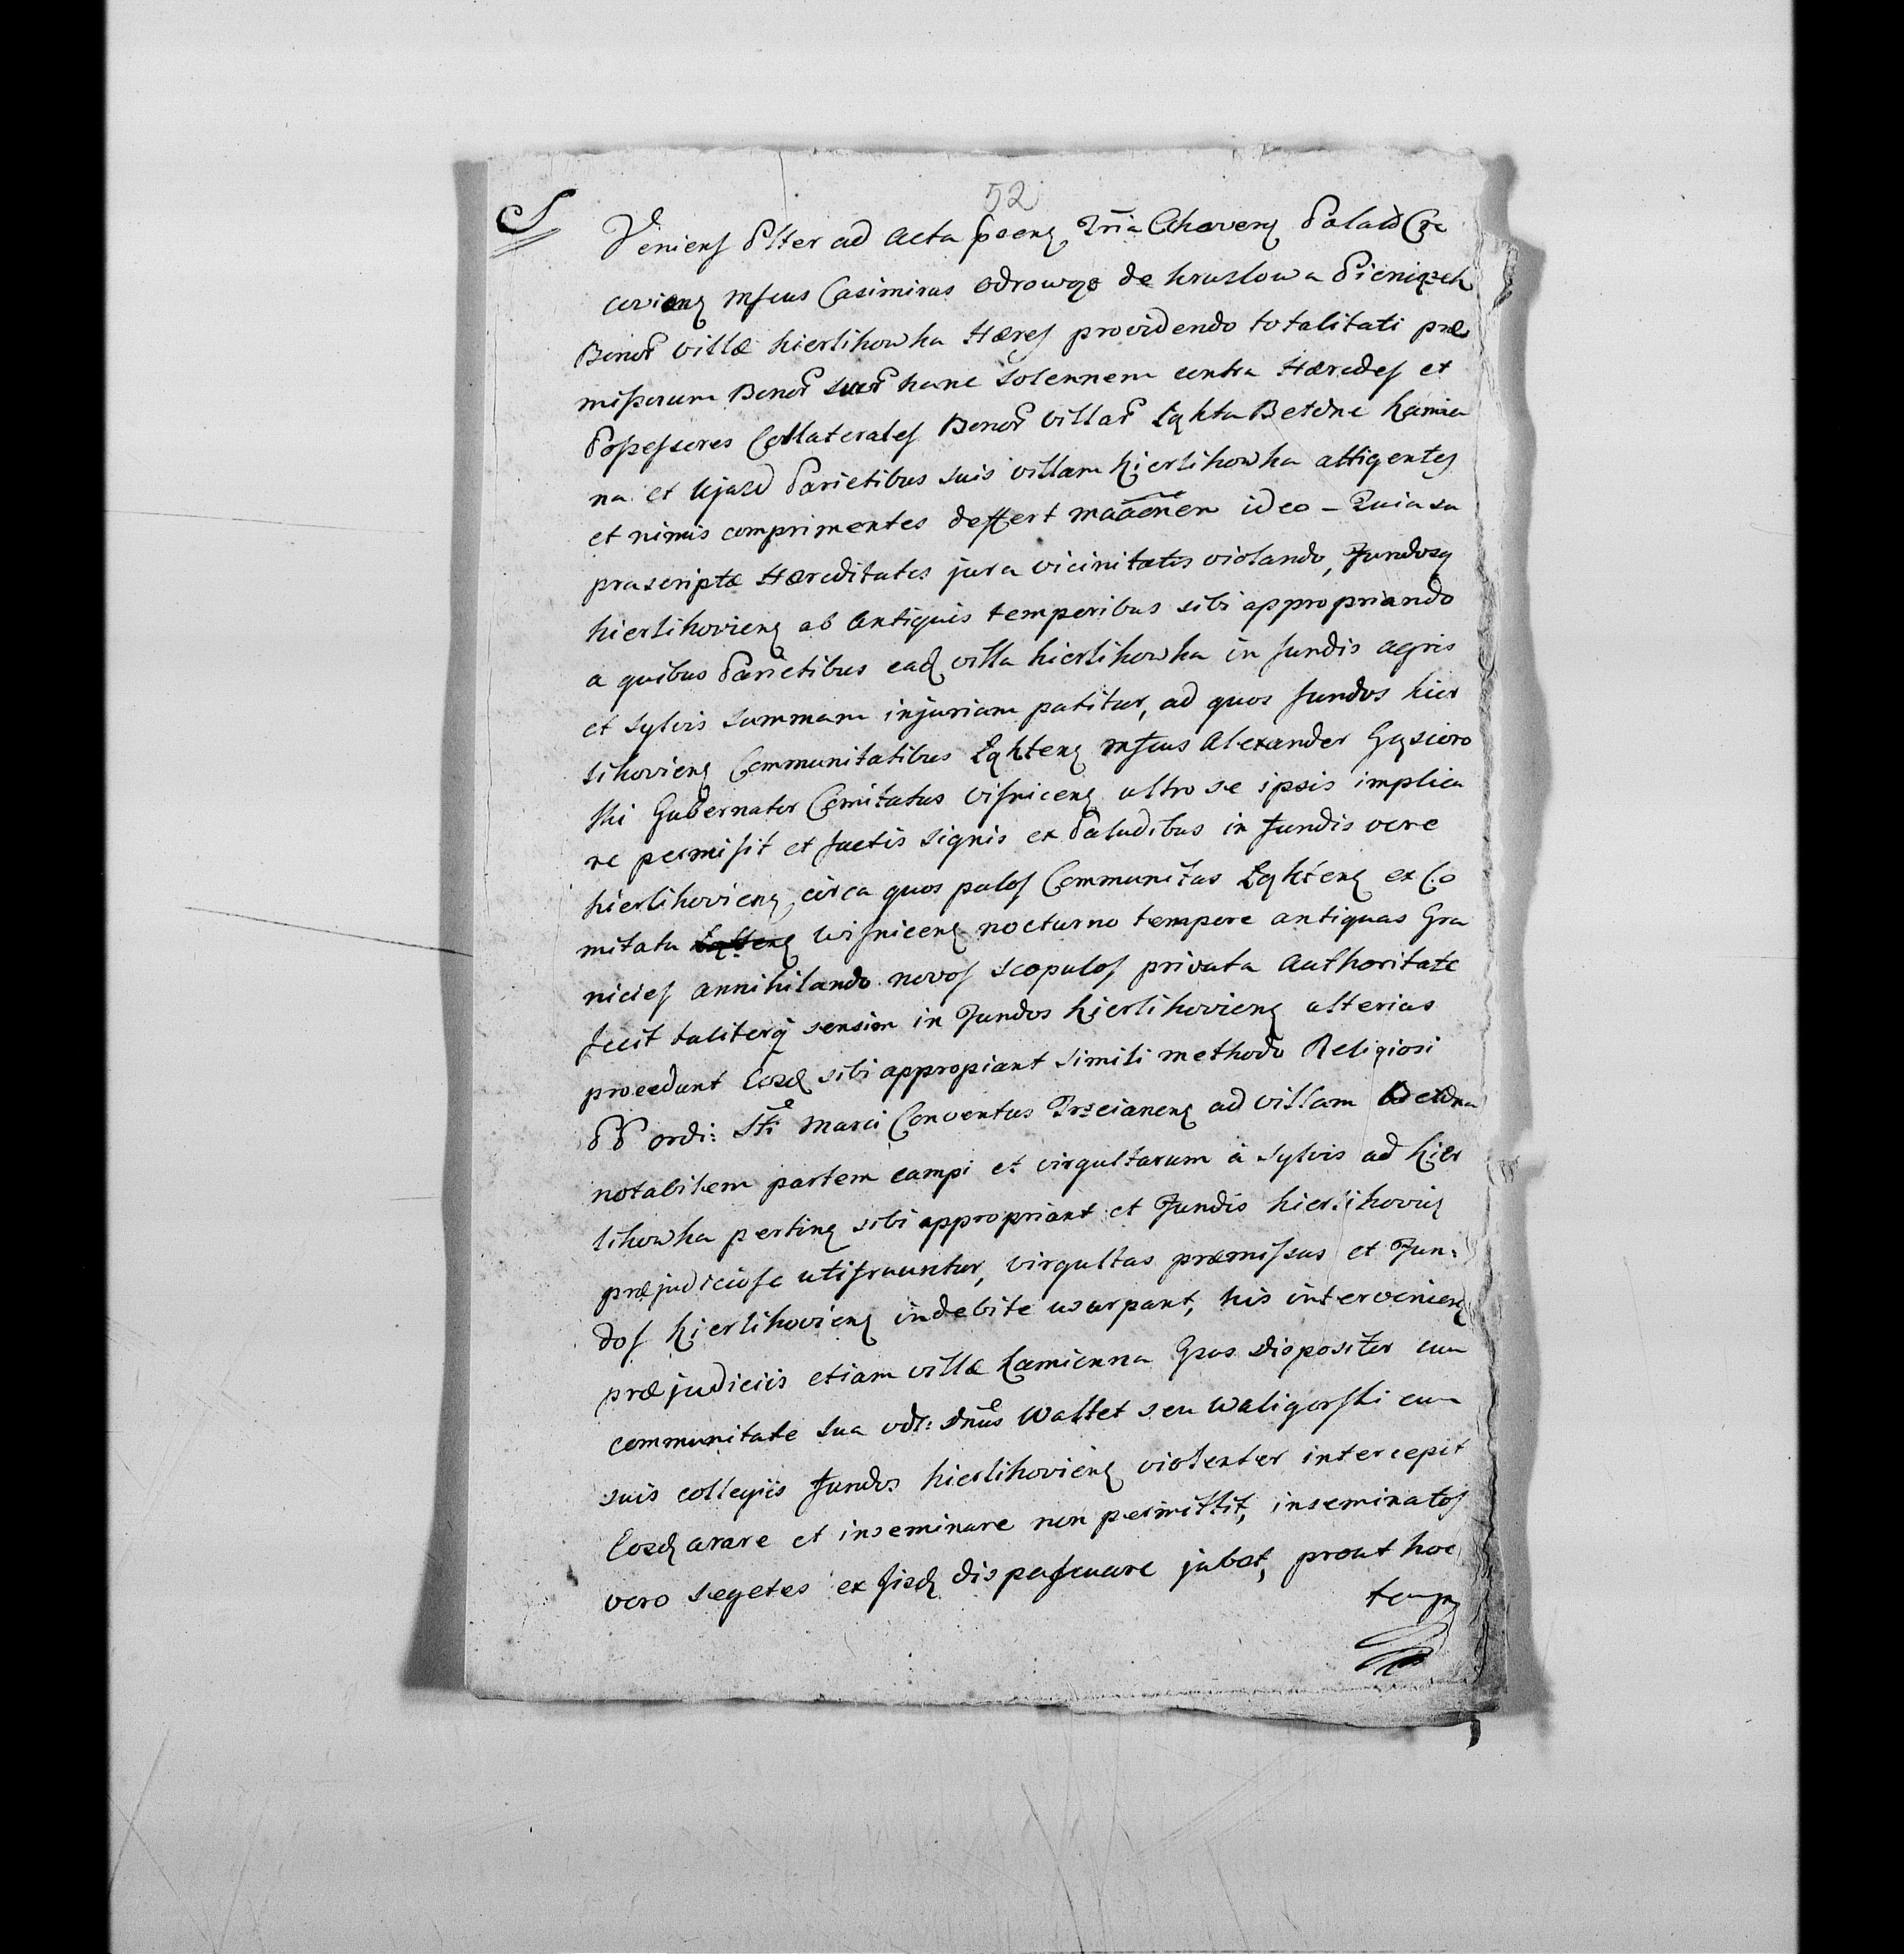 52
S
Veniens Pster ad Acta psens Trria Cchoviens Palatd Cra
coviens Mfcus Casimirus Odrowąż de Kruzlowa Pieniązek
Bonor villæ Kierlikowka Hæres providendo totalitati præ
missorum Bonor suor hanc solennem contra Hæredes et
Possessores Collaterales Bonor villar Łąkta Beldne Kamie
na et Ujazd Parietibus suis villam Kierlikowka attigentes
et nimis comprimentes deffert maãonem ideo – Quia su
prascriptæ Hæreditates jura vicinitatis violando, Fundosq
Kierlikoviens ab Antiquis temporibus sibi appropriando
a quibus Parietibus ead villa Kierlikowka in fundis agris
et sylvis summam injuriam patitur, ad quos fundos Kier
likoviens Communitatibus Łąktens Mfcus Alexander Gąsioro
ski Gubernator Comitatus Visniciens ultro se ipsis implica
re permisit et factis signis ex Paludibus in fundis vere
Kierlikoviens, circa quos palos Communitas Łąktens ex Co
mitatu Wisniciens nocturno tempore antiquas Gra
nicies annihilando novos scopulos privata Authoritate
fecit taliterq sensim in Fundos Kierlikoviens ulterius
procedunt Eosd sibi appropiant simili methodo Religiosi
PP ordi: Sti Marci Conventus Trzcianens ad villam Beldna
notabilem partem campi et virgultarum à Sylvis ad Kier
likowka pertins sibi appropriant et Fundis Kierlikovics
præjudiciose utifruuntur, virgultas præmissas et Fun:
dos Kierlikoviens indebite usurpant, his interveniens
præjudiciis etiam villæ Kamienna Gsus dispositor cum
communitate sua vdt: dnus Waltet seu Waligorski cum
suis collegiis fundos Kierlikoviens violenter intercepit
Eosd arare et inseminare non permittit, inseminatos
vero segetes ex iisd dispascuare jubet, prout hoc
temp